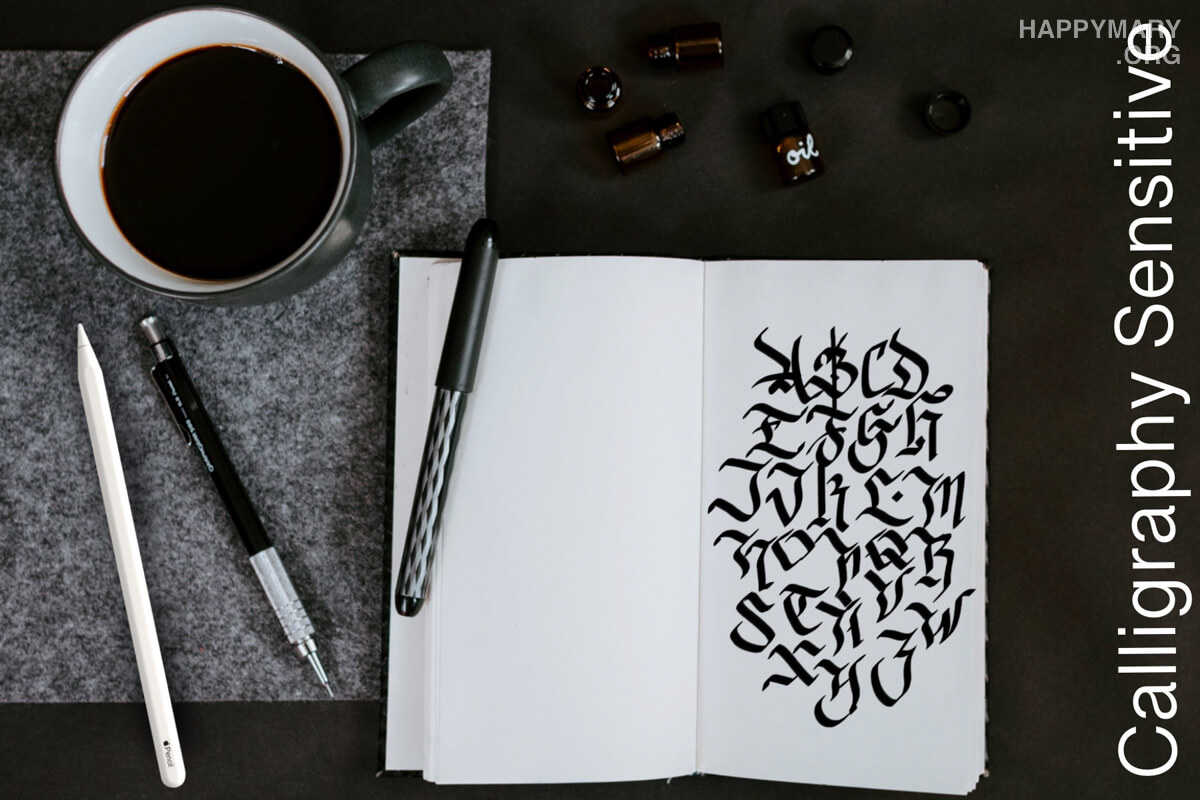 HAPPYMARY
.ORG
Calligraphy Sensitive
oil
A B C D
E F G H
I J K L M
N O P Q R
S T U V W
X Y Z
Pencil